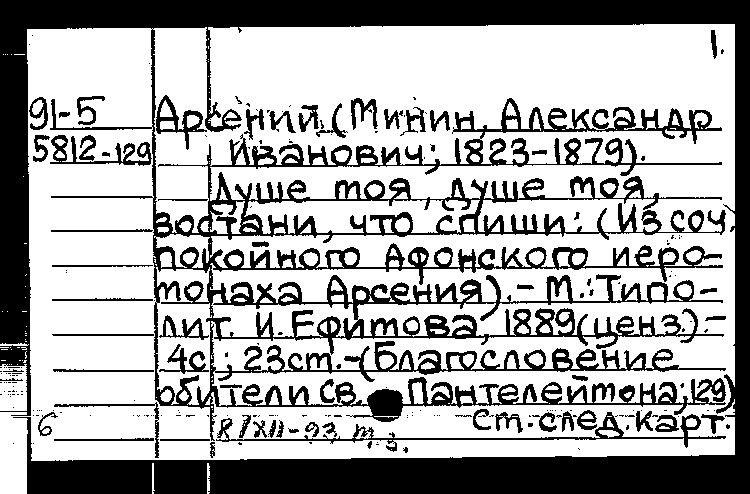 1.
91-5 Арсений (Минин, Александр
5812-129 Иванович; 1823-1879).
Душе моя, душе моя,
востани, что спиши: (Из соч.
покойного Афонского иеро-
монаха Арсения).- М.: Типо-
лит. И. Ефимова, 1889(ценз.).-
4с.; 23см.-(Благословение
обители Св. Пантелеймона;129)
См. след. карт.
6 8/XII-93 т.з.